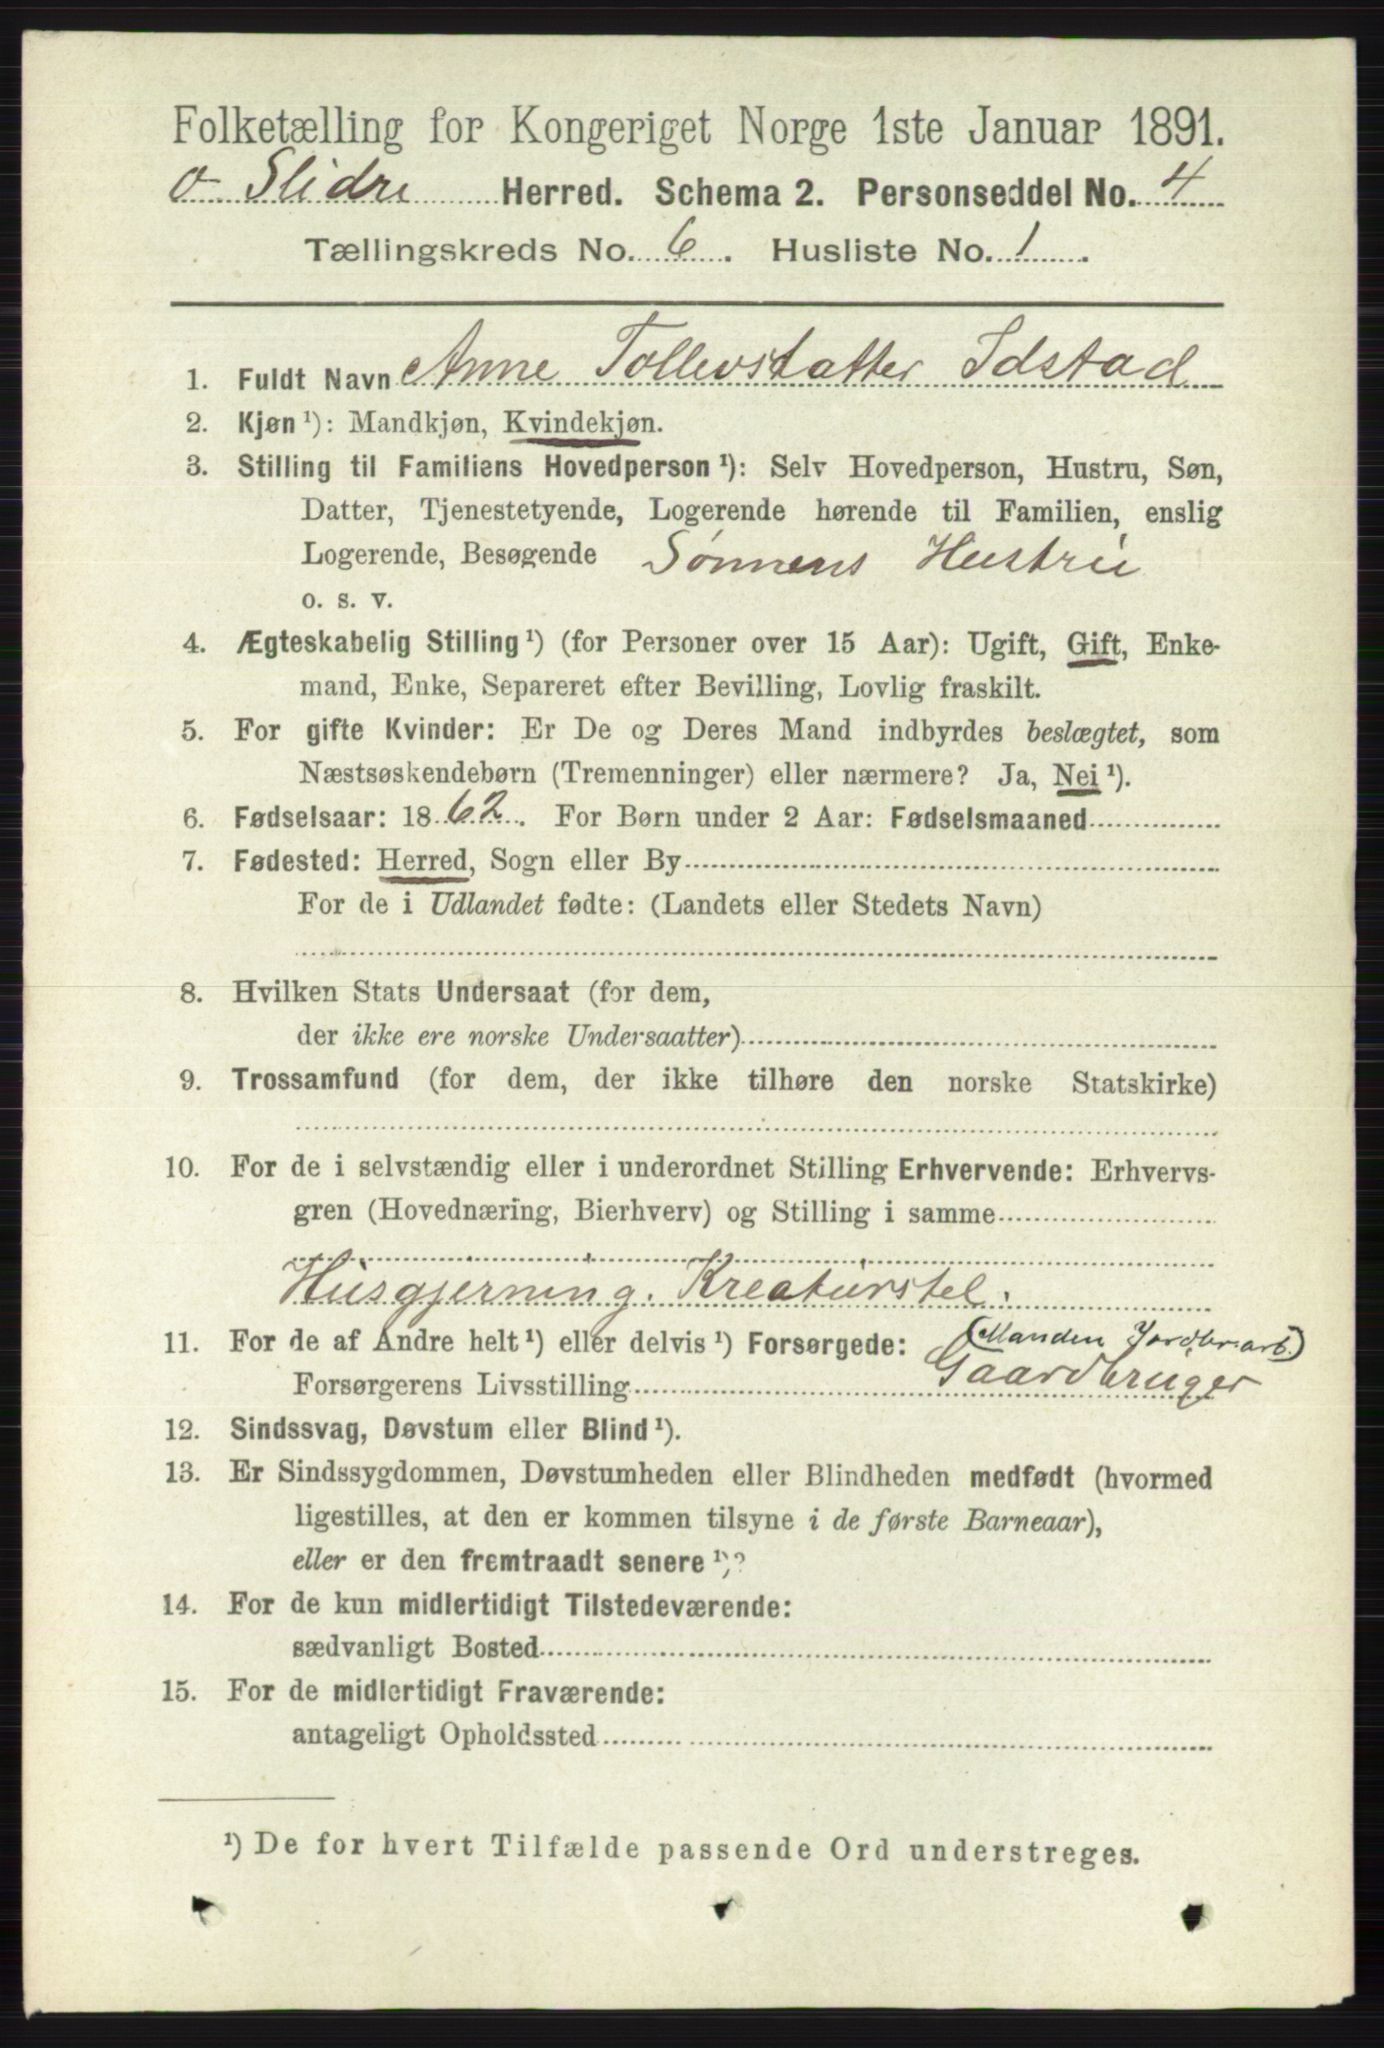 Folketælling for Kongeriget Norge 1ste Januar 1891.
ø Slidre Herred. Schema 2. Personseddel No. 4
Tællingskreds No. 6. Husliste No. 1.
1. Fuldt Navn Anne Tollevsdatter Idstad
2. Kjøn ¹): Mandkjøn, Kvindekjøn.
3. Stilling til Familiens Hovedperson ¹): Selv Hovedperson, Hustru, Søn,
Datter, Tjenestetyende, Logerende hørende til Familien, enslig
Logerende, Besøgende Sønnens Hustru
o. s. v.
4. Ægteskabelig Stilling ¹) (for Personer over 15 Aar): Ugift, Gift, Enke-
mand, Enke, Separeret efter Bevilling, Lovlig fraskilt.
5. For gifte Kvinder: Er De og Deres Mand indbyrdes beslægtet, som
Næstsøskendebørn (Tremenninger) eller nærmere? Ja, Nei ¹).
6. Fødselsaar: 1862. For Børn under 2 Aar: Fødselsmaaned
7. Fødested: Herred, Sogn eller By
For de i Udlandet fødte: (Landets eller Stedets Navn)
8. Hvilken Stats Undersaat (for dem,
der ikke ere norske Undersaatter)
9. Trossamfund (for dem, der ikke tilhøre den norske Statskirke)
10. For de i selvstændig eller i underordnet Stilling Erhvervende: Erhvervs-
gren (Hovednæring, Bierhverv) og Stilling i samme
Husgjerning. Kreaturstel.
11. For de af Andre helt ¹) eller delvis ¹) Forsørgede: (Manden Jordbr.arb.)
Forsørgerens Livsstilling Gaardbruger
12. Sindssvag, Døvstum eller Blind ¹).
13. Er Sindssygdommen, Døvstumheden eller Blindheden medfødt (hvormed
ligestilles, at den er kommen tilsyne i de første Barneaar),
eller er den fremtraadt senere ¹)?
14. For de kun midlertidigt Tilstedeværende:
sædvanligt Bosted
15. For de midlertidigt Fraværende:
antageligt Opholdssted
¹) De for hvert Tilfælde passende Ord understreges.